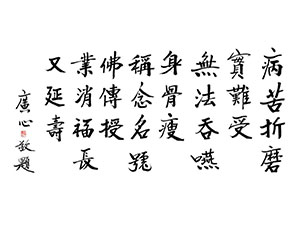 病苦折磨
實難受
無法吞嚥
身骨瘦
稱念名號
佛傳授
業消福長
又延壽
廣心敬題